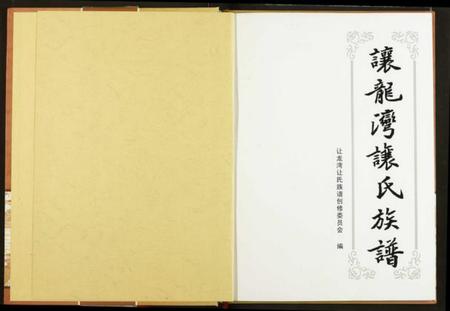 讓龍灣讓氏族譜
让龙湾让氏族谱创修委员会 编